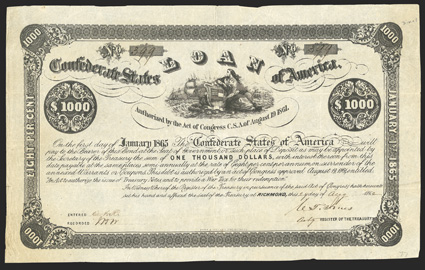 1000
1000
No.
No.
LOAN
Confederate States of America.
Authorized by the Act of Congress C.S.A. of August 19 1861.
$1000
$1000
EIGHT PER CENT
JANUARY 1865
On the first day of January 1865 The Confederate States of America will
pay to the Bearer of this Bond at the Seat of Government or such place of Deposit as may be appointed by
the Secretary of the Treasury the sum of ONE THOUSAND DOLLARS, with interest thereon from this
date payable at the same place semi annually at the rate of Eight per centum per annum on surrender of the
annexed Warrants or Coupons. This debt is authorized by an act of Congress approved August 19 1861, entitled
"An Act to authorize the issue of Treasury Notes and to provide a War Tax for their redemption."
In Witness Whereof the Register of the Treasury in pursuance of the said Act of Congress hath hereunto
set his hand and affixed the seal of the Treasury at RICHMOND, this
ENTERED
RECORDED
REGISTER OF THE TREASURY
1000
1000